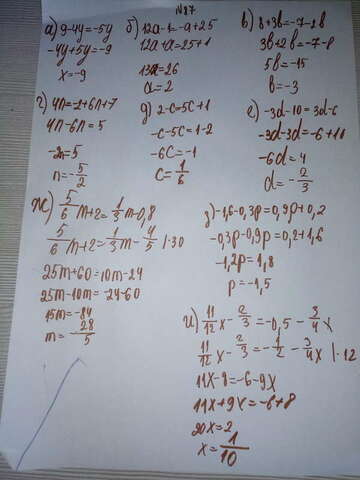 №87
а) 9-4y=-5y
-4y+5y=-9
x=-9
б) 12a-1=-a+25
12a+a=25+1
13a=26
a=2
в) 8+3b=-7-2b
3b+2b=-7-8
5b=-15
b=-3
г) 4n=-2+6n+7
4n-6n=5
-2n=5
n=-5/2
д) 2-c=5c+1
-c-5c=1-2
-6c=-1
c=1/6
е) -3d-10=3d-6
-3d-3d=-6+10
-6d=4
d=-2/3
ж) 5/6 m+2=1/3 m-0,8
5/6 m+2=1/3 m-4/5 |·30
25m+60=10m-24
25m-10m=-24-60
15m=-84
m=-28/5
з) -1,6-0,3p=0,9p+0,2
-0,3p-0,9p=0,2+1,6
-1,2p=1,8
p=-1,5
и) 11/12 x-2/3=-0,5-3/4 x
11/12 x-2/3=-1/2-3/4 x |·12
11x-8=-6-9x
11x+9x=-6+8
20x=2
x=1/10